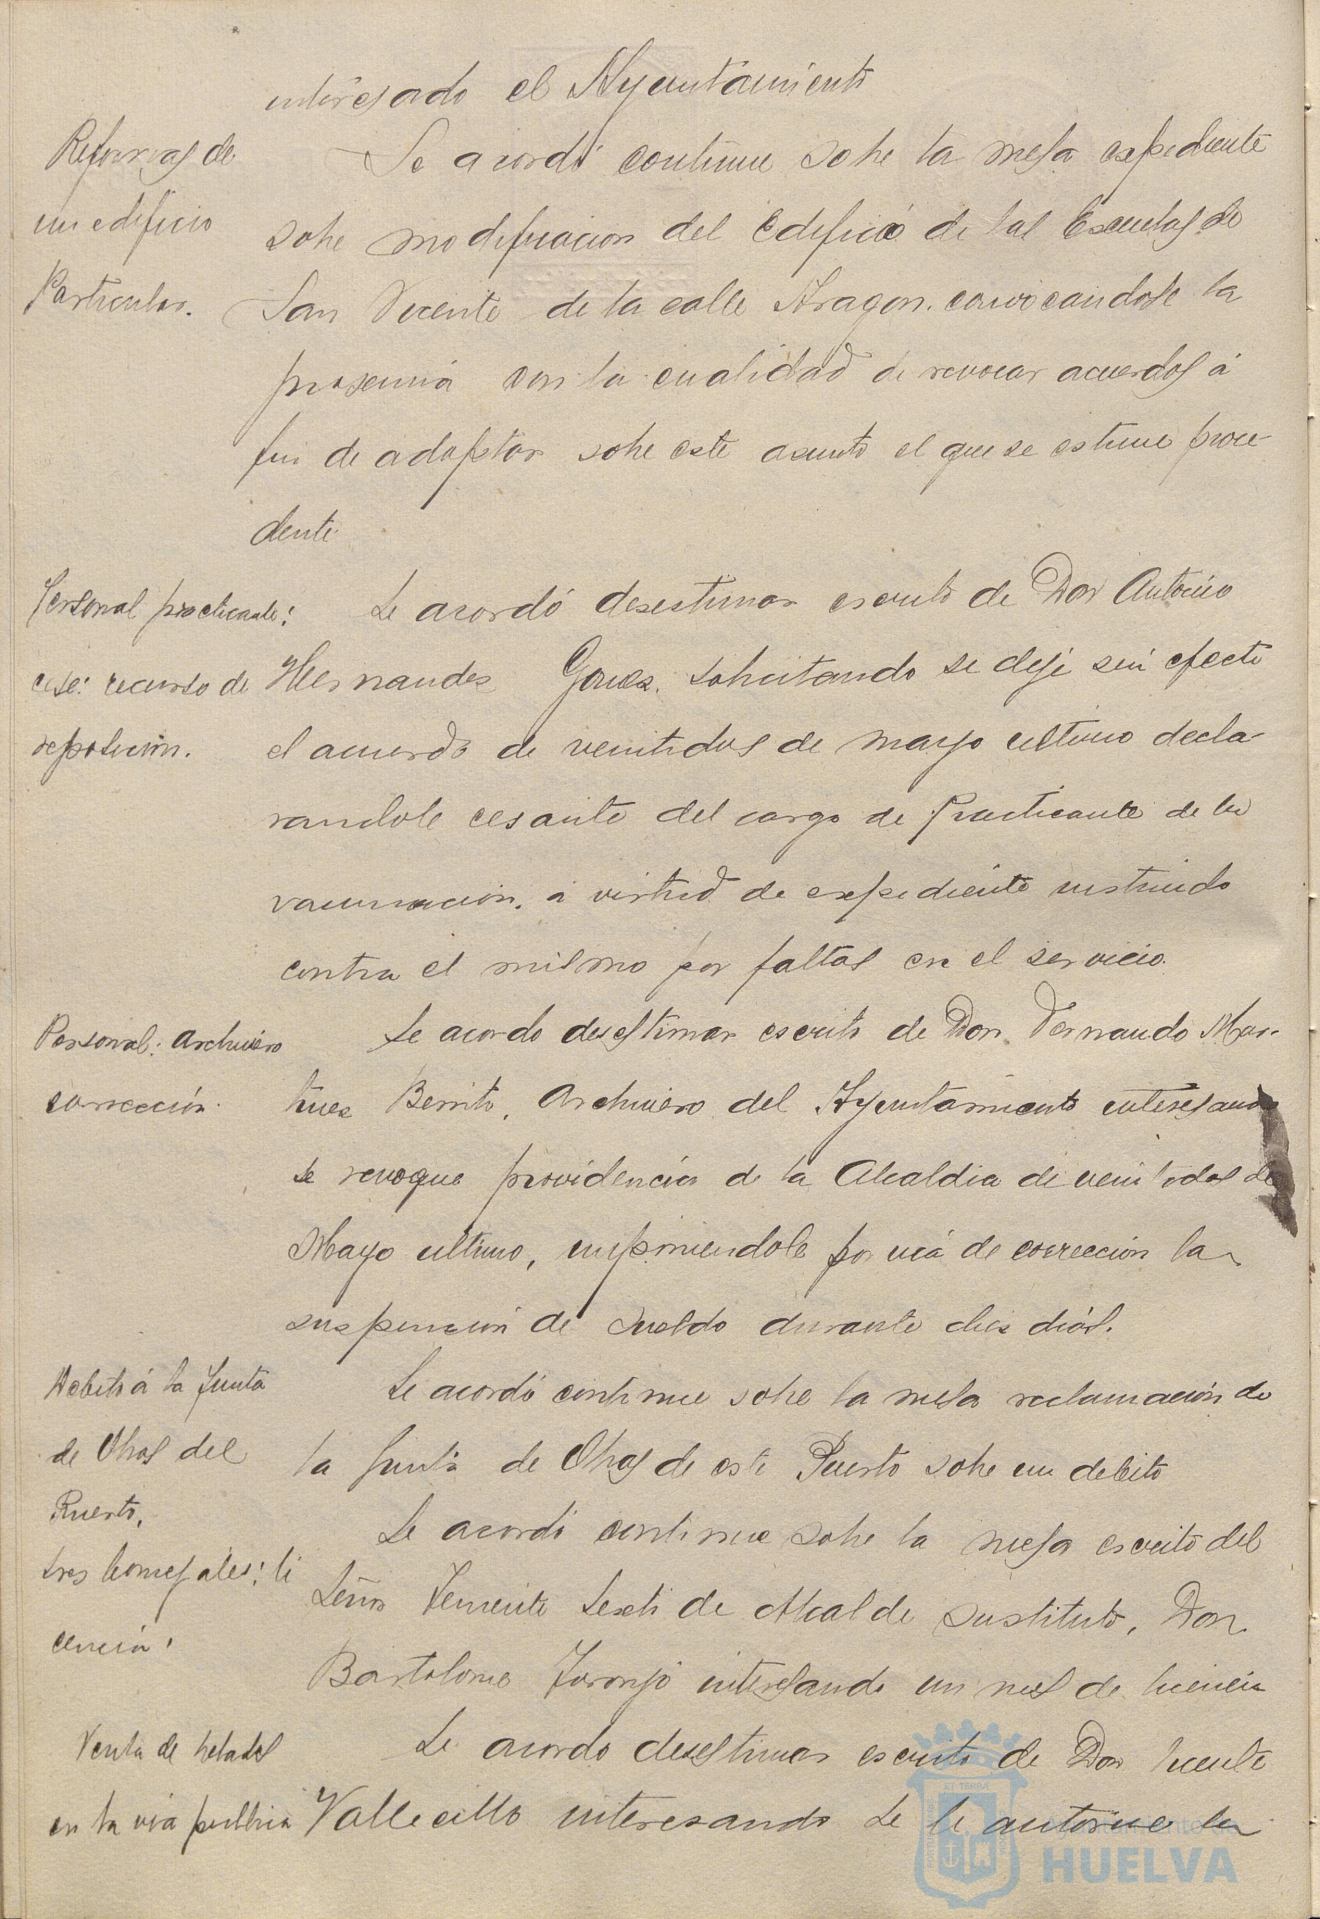 interesado el Ayuntamiento
Reformas de
un edificio
Particular.
Se acordó continue sobre la mesa expediente
sobre modificacion del Edificio de las Escuelas de
San Vicente de la calle Aragon. convocandose la
proxima con la cualidad de revocar acuerdos á
fin de adoptar sobre este asunto el que se estime proce-
dente.
Personal practicante:
cese: recurso de
reposición.
Se acordó desestimar escrito de Don Antonio
Hernandez Gomez, solicitando se deje sin efecto
el acuerdo de veintidos de mayo ultimo decla-
randole cesante del cargo de Practicante de la
vacunación. á virtud de expediente instruido
contra el mismo por faltas en el servicio.
Personal: Archivero
corrección.
Se acordo desestimar escrito de Don Fernando Mar-
tinez Benito, Archivero del Ayuntamiento interesando
se revoque providencia de la Alcaldia de veintidos de
Mayo ultimo, imponiendole por via de corrección la
suspensión de sueldo durante diez dias.
Debito á la Junta
de Obras del
Puerto.
Se acordó continue sobre la mesa reclamación de
la Junta de Obras de este Puerto sobre un debito
Sres Concejales: li
cencia:
Se acordó continue sobre la mesa escrito del
Señor Teniente Sexto de Alcalde sustituto, Don
Bartolome Naranjo interesando un mes de licencia
Venta de helados
en la via publica
Se acordo desestimar escrito de Don Vicente
Vallecillo interesando se le autorice la
Ayuntamiento de
HUELVA